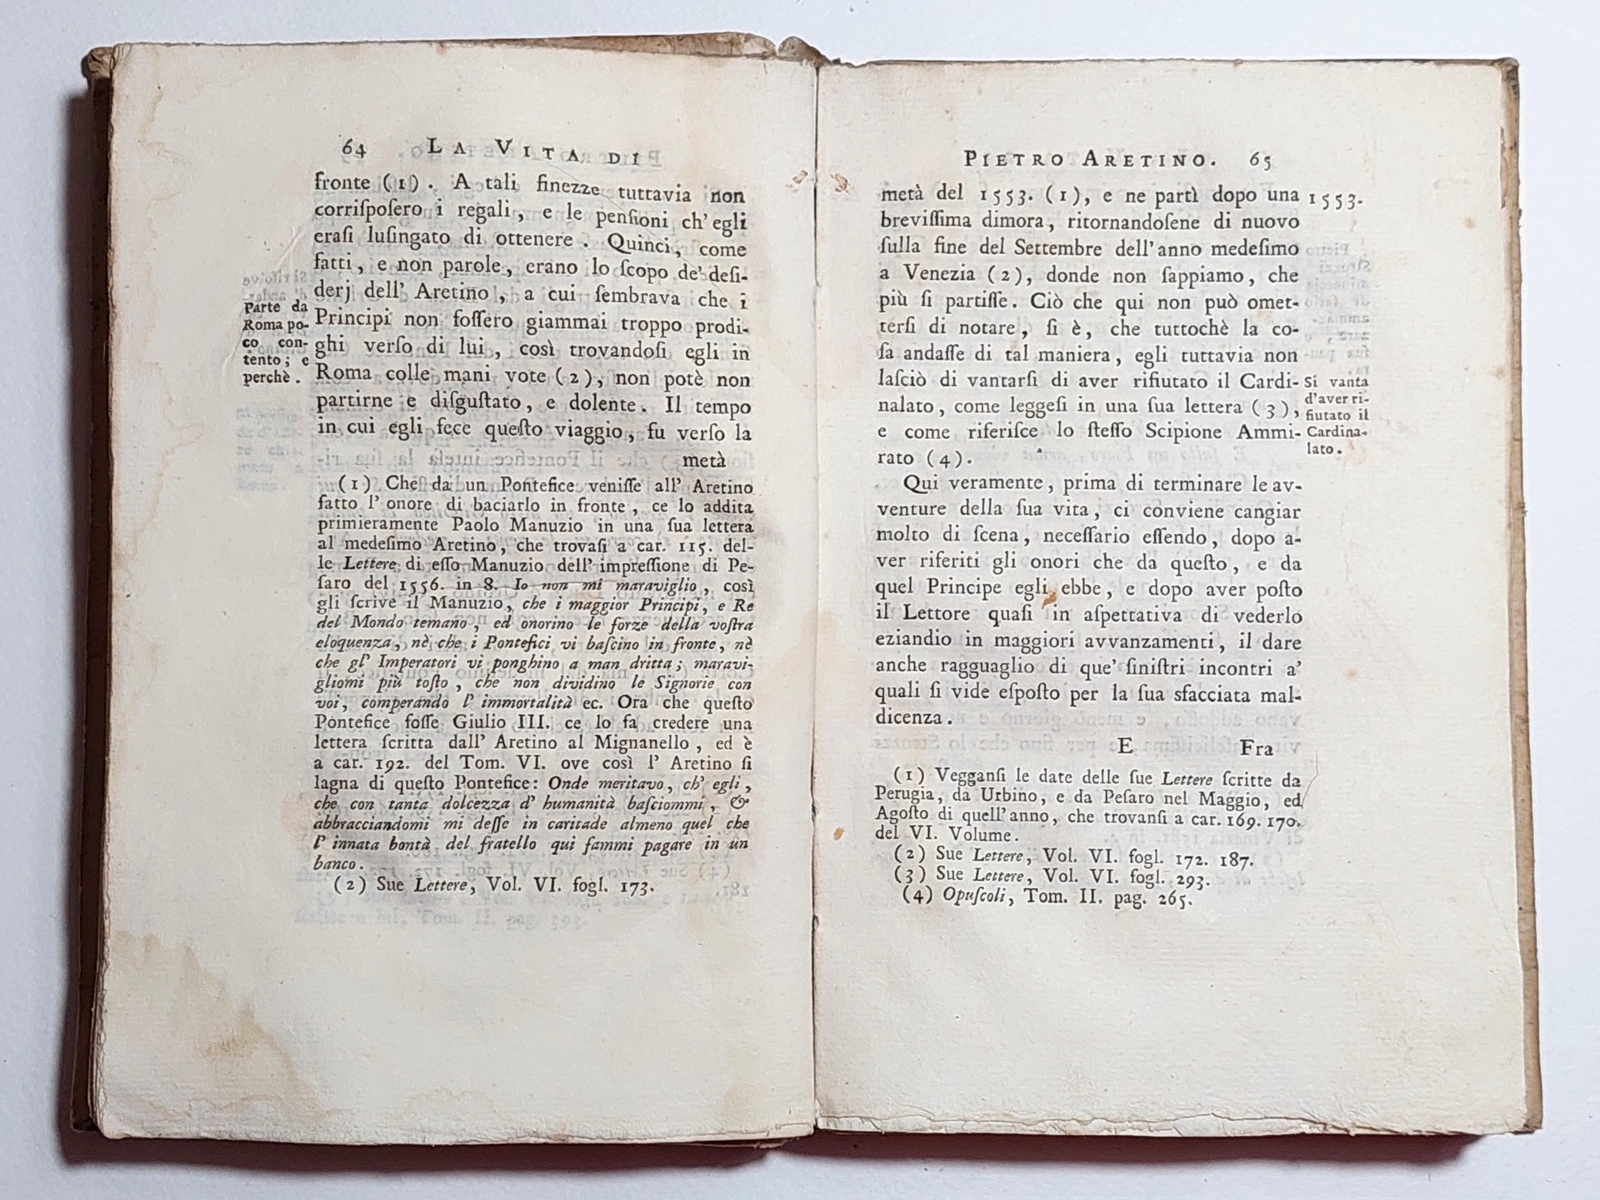 64 LA VITA DI
fronte (1). A tali finezze tuttavia non
corriſpoſero i regali, e le penſioni ch' egli
eraſi luſingato di ottenere. Quinci, come
fatti, e non parole, erano lo ſcopo de' deſi-
derj dell' Aretino, a cui ſembrava che i
Principi non foſſero giammai troppo prodi-
ghi verſo di lui, così trovandoſi egli in
Roma colle mani vote (2), non potè non
partirne e diſguſtato, e dolente. Il tempo
in cui egli fece queſto viaggio, fu verſo la
metà
Parte da
Roma po-
co con-
tento; e
perchè.
(1) Che da un Pontefice veniſſe all' Aretino
fatto l' onore di baciarlo in fronte, ce lo addita
primieramente Paolo Manuzio in una ſua lettera
al medeſimo Aretino, che trovaſi a car. 115. del-
le Lettere di eſſo Manuzio dell' impreſſione di Pe-
ſaro del 1556. in 8. Io non mi maraviglio, così
gli ſcrive il Manuzio, che i maggior Principi, e Re
del Mondo temano, ed onorino le forze della voſtra
eloquenza, nè che i Pontefici vi baſcino in fronte, nè
che gl' Imperatori vi ponghino a man dritta; maravi-
gliomi più toſto, che non dividino le Signorie con
voi, comperando l' immortalità ec. Ora che queſto
Pontefice foſſe Giulio III. ce lo fa credere una
lettera ſcritta dall' Aretino al Mignanello, ed è
a car. 192. del Tom. VI. ove così l' Aretino ſi
lagna di queſto Pontefice: Onde meritavo, ch' egli,
che con tanta dolcezza d' humanità baſciommi, &
abbracciandomi mi deſſe in caritade almeno quel che
l' innata bontà del fratello qui fammi pagare in un
banco.
(2) Sue Lettere, Vol. VI. fogl. 173.
PIETRO ARETINO. 65
metà del 1553. (1), e ne partì dopo una
breviſſima dimora, ritornandoſene di nuovo
ſulla fine del Settembre dell' anno medeſimo
a Venezia (2), donde non ſappiamo, che
più ſi partiſſe. Ciò che qui non può omet-
terſi di notare, ſi è, che tuttochè la co-
ſa andaſſe di tal maniera, egli tuttavia non
laſciò di vantarſi di aver rifiutato il Cardi-
nalato, come leggeſi in una ſua lettera (3),
e come riferiſce lo ſteſſo Scipione Ammi-
rato (4).
1553.
Si vanta
d'aver ri-
fiutato il
Cardina-
lato.
Qui veramente, prima di terminare le av-
venture della ſua vita, ci conviene cangiar
molto di ſcena, neceſſario eſſendo, dopo a-
ver riferiti gli onori che da queſto, e da
quel Principe egli ebbe, e dopo aver poſto
il Lettore quaſi in aſpettativa di vederlo
eziandio in maggiori avvanzamenti, il dare
anche ragguaglio di que' ſiniſtri incontri a'
quali ſi vide eſpoſto per la ſua sfacciata mal-
dicenza.
E Fra
(1) Vegganſi le date delle ſue Lettere ſcritte da
Perugia, da Urbino, e da Peſaro nel Maggio, ed
Agoſto di quell' anno, che trovanſi a car. 169. 170.
del VI. Volume.
(2) Sue Lettere, Vol. VI. fogl. 172. 187.
(3) Sue Lettere, Vol. VI. fogl. 293.
(4) Opuſcoli, Tom. II. pag. 265.